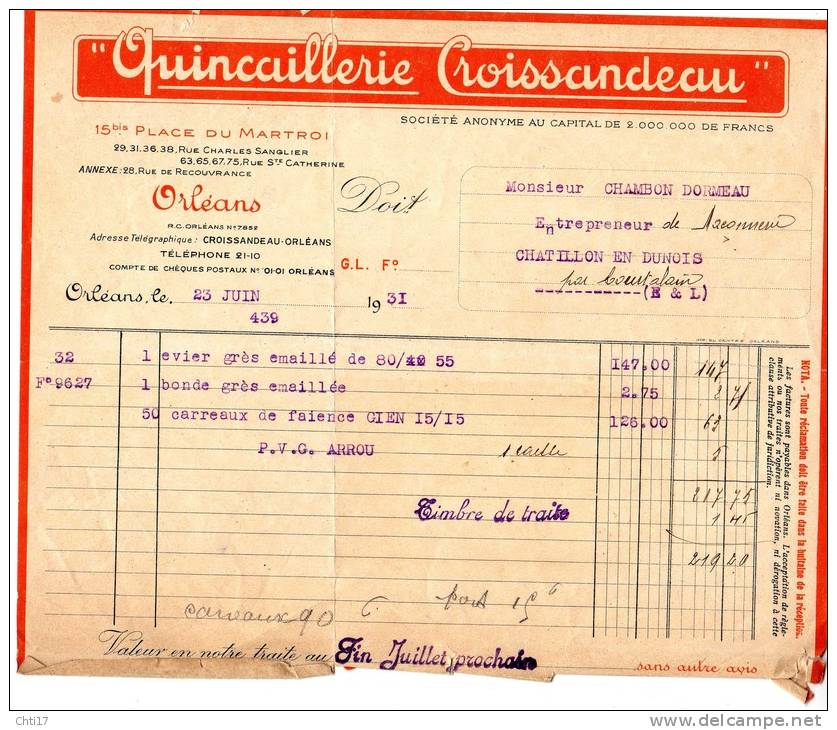 "Quincaillerie Croissandeau"
SOCIÉTÉ ANONYME AU CAPITAL DE 2.000.000 DE FRANCS
15bis PLACE DU MARTROI
29,31.36.38, RUE CHARLES SANGLIER
63,65,67,75, RUE STE CATHERINE
ANNEXE: 28, RUE DE RECOUVRANCE
Orléans
R.C. ORLÉANS N° 7852
Adresse Télégraphique: CROISSANDEAU-ORLÉANS
TÉLÉPHONE 21-10
COMPTE DE CHÈQUES POSTAUX N° 101-01 ORLÉANS
Doit
G.L. F°
Monsieur CHAMBON DORMEAU
Entrepreneur de Maçonnerie
CHATILLON EN DUNOIS
par Courtalain
(E & L)
Orléans, le 23 JUIN 1931
439
32 1 evier grès emaillé de 80/42 55 147.00 147
F° 9627 1 bonde grès emaillée 2.75 2 75
50 carreaux de faience GIEN 15/15 126.00 63
P.V.G. ARROU 5
217 75
Timbre de traite 1 45
219 20
carreaux 90 port 15
Valeur en notre traite au Fin Juillet prochain sans autre avis
NOTA. - Toute réclamation doit être faite dans la huitaine de la réception.
Les factures sont payables dans Orléans. L'acceptation de règle-
ments ou nos traites n'opèrent ni novation, ni dérogation à cette
clause attributive de juridiction.
Chti17
www.delcampe.net